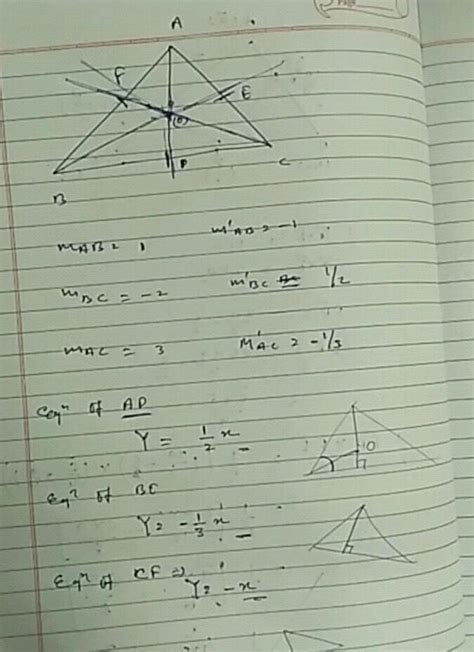 Page
A
F
E
(0)
D
B
C
mAB = 1 m'AB = -1
mBC = -2 m'BC = 1/2
mAC = 3 m'AC = -1/3
Eqⁿ of AD
Y = 1/2 x
O
Eqⁿ of BE
Y = -1/3 x
Eqⁿ of CF ⇒
Y = -x